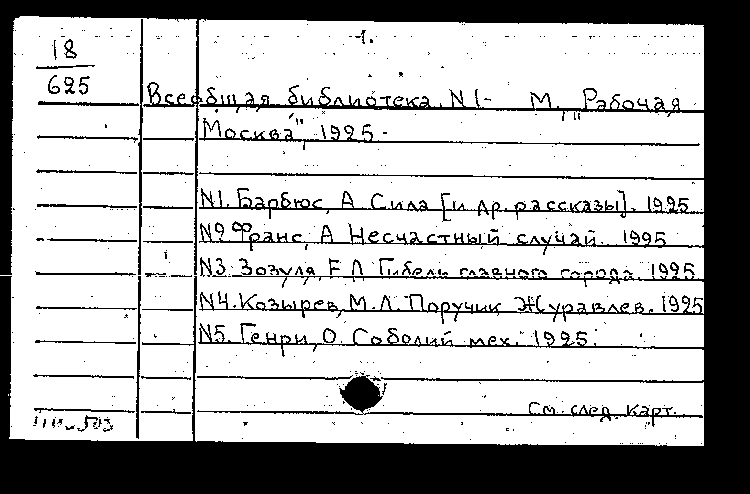 1.
18
625
Всеобщая библиотека. N1- М., „Рабочая
Москва", 1925-
N1. Барбюс, А Сила [и др. рассказы]. 1925
N2 Франс, А Несчастный случай. 1925
N3. Зозуля, Е Д Гибель главного города. 1925
N4. Козырев, М.Л. Поручик Журавлев. 1925
N5. Генри, О. Соболий мех. 1925.
См. след. карт.